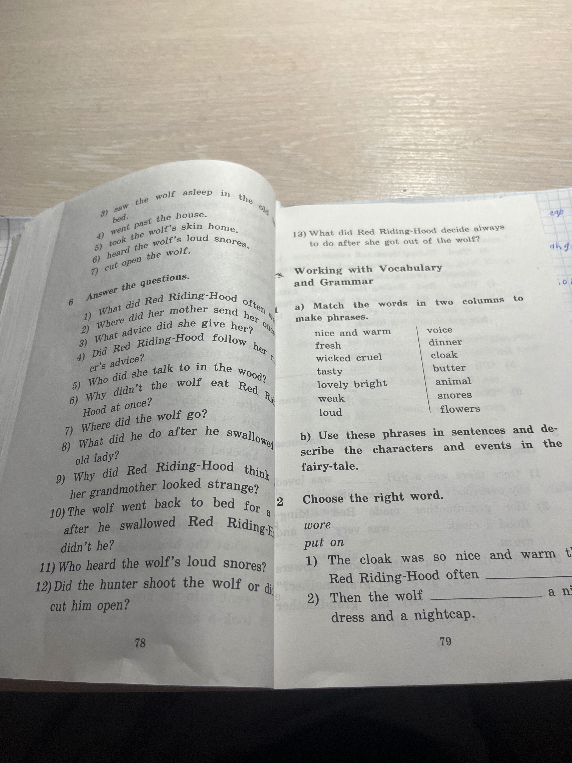 3) saw the wolf asleep in the old
bed.
4) went past the house.
5) took the wolf's skin home.
6) heard the wolf's loud snores.
7) cut open the wolf.
6 Answer the questions.
1) What did Red Riding-Hood often
2) Where did her mother send her
3) What advice did she give her?
4) Did Red Riding-Hood follow her
er's advice?
5) Who did she talk to in the wood?
6) Why didn't the wolf eat Red
Hood at once?
7) Where did the wolf go?
8) What did he do after he swallowed
old lady?
9) Why did Red Riding-Hood think
her grandmother looked strange?
10) The wolf went back to bed for a
after he swallowed Red Riding-H
didn't he?
11) Who heard the wolf's loud snores?
12) Did the hunter shoot the wolf or di
cut him open?
78
13) What did Red Riding-Hood decide always
to do after she got out of the wolf?
Working with Vocabulary
and Grammar
a) Match the words in two columns to
make phrases.
nice and warm voice
fresh dinner
wicked cruel cloak
tasty butter
lovely bright animal
weak snores
loud flowers
b) Use these phrases in sentences and de-
scribe the characters and events in the
fairy-tale.
2 Choose the right word.
wore
put on
1) The cloak was so nice and warm t
Red Riding-Hood often
2) Then the wolf a ni
dress and a nightcap.
79